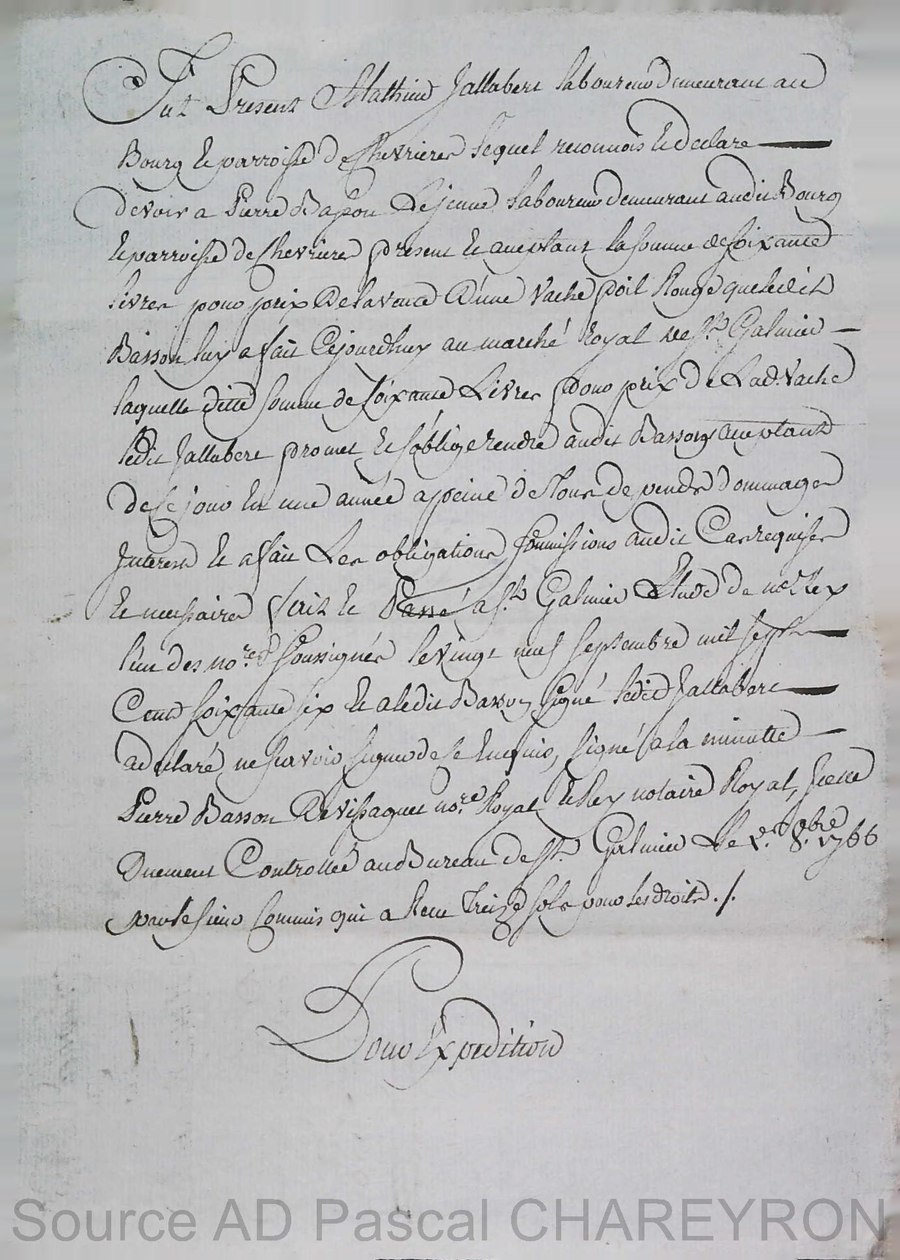 Fut Present Mathieu Jallabert laboureur demeurant au
Bourg et parroisse de Chevrieres lequel reconnois et declare
devoir a Pierre Basson le jeune laboureur demeurant audit Bourg
et parroisse de Chevrieres present et aceptant la somme de soixante
livres pour prix de la vante d'une vache poil Rouge que ledit
Basson luy a fait cejourdhuy au marché Royal de st. Galmier
laquelle ditte somme de soixante Livres pour prix de lad. vache
ledit Jallabert promet et soblige rendre audit Basson aceptant
de ce jour en une année a peine de tous depends dommages
Interests et a fait les obligations soumissions audit Cas requises
et necessaires fait et Passé a st. Galmier Etude de me. Rey
l'un des nores. soussignés le vingt neuf septembre mil sept
Cent soixante six et a ledit Basson signé ledit Jallabert
a declaré ne scavoir signer de ce enquis, signé a la minutte
Pierre Basson Devissaguet nore. Royal et Rey notaire Royal, Icelle
Duement Controllée au Bureau de st. Galmier le 2. 8.bre 1766
par le sieur Commis qui a Recu treize sols pour les droits ./.
Pour Expedition
Source AD Pascal CHAREYRON